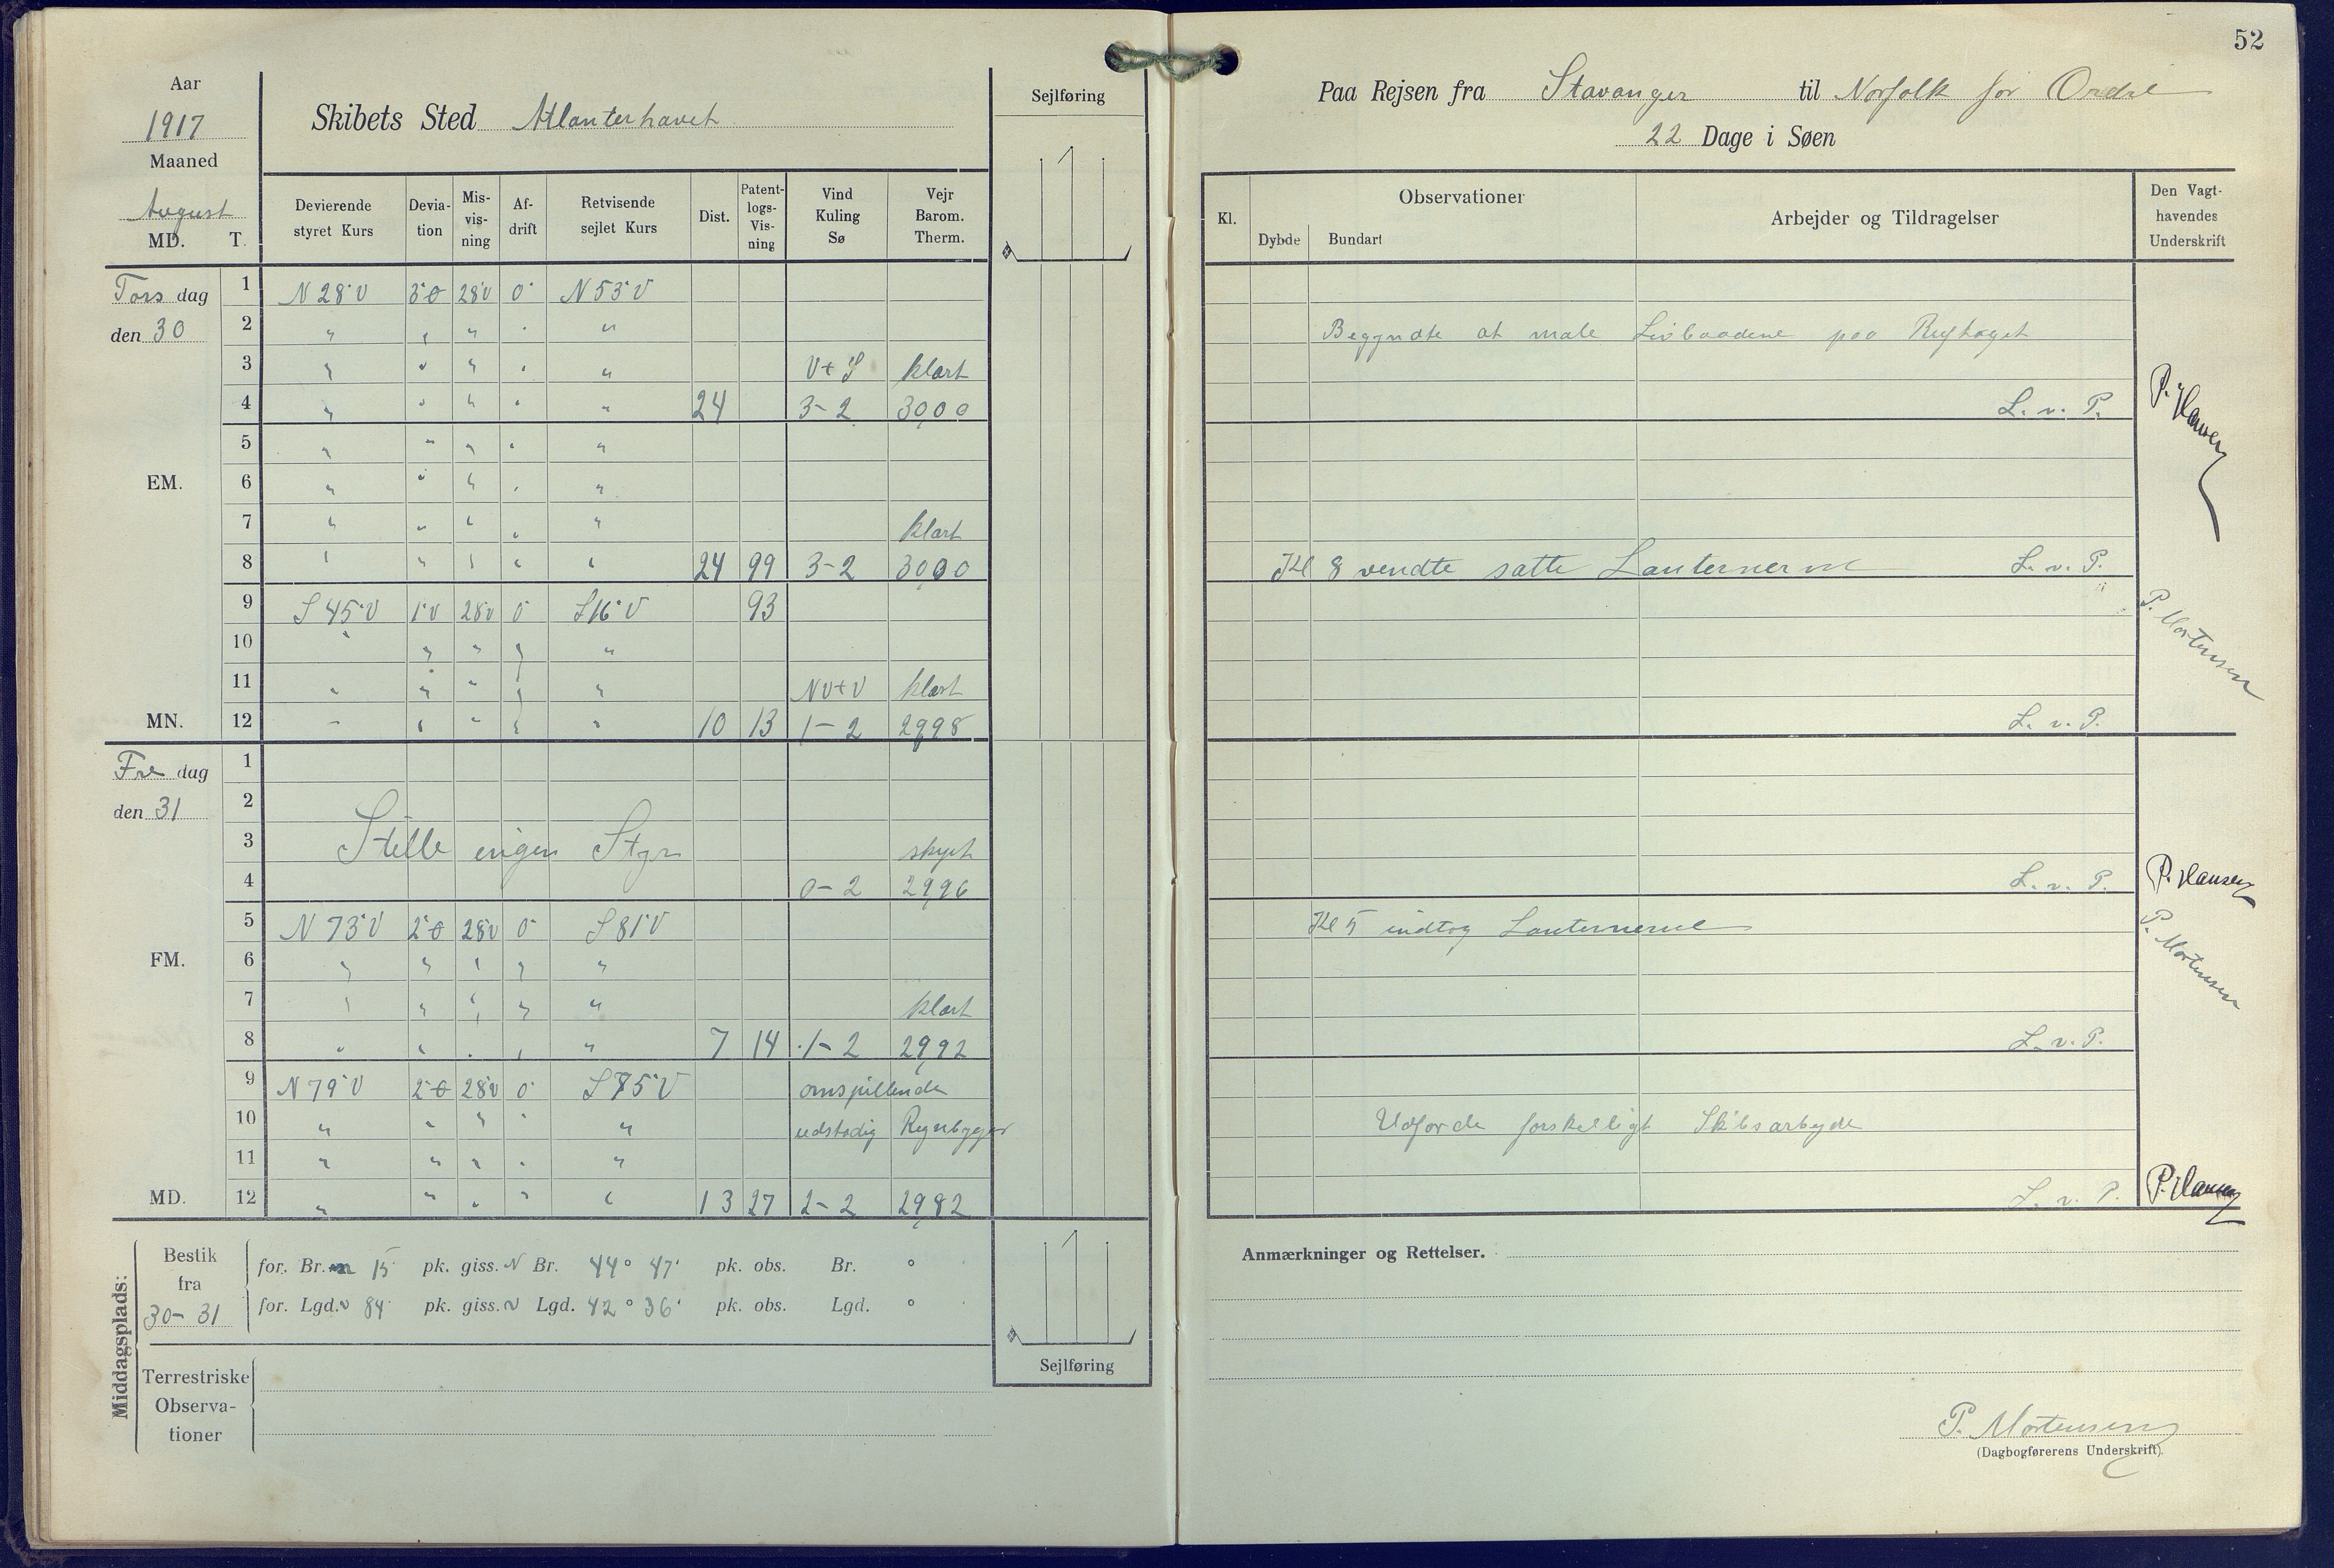 52
Aar
1917
Maaned
August
MD. T.
Skibets Sted Atlanterhavet
Sejlføring
Devierende styret Kurs
Deviation
Misvisning
Afdrift
Retvisende sejlet Kurs
Dist.
Patentlogs-Visning
Vind Kuling Sø
Vejr Barom. Therm.
Tors dag
den 30
1 N 28° V 3° Ø 28° V 0° N 53° V
2 " " " " "
3 " " " " " V t S klart
4 " " " " " 24 3-2 30,00
5 " " " " "
EM.
6 " " " " "
7 " " " " " klart
8 " " " " " 24 99 3-2 30,00
9 S 45° V 1° V 28° V 0° S 16° V 93
10 " " " " "
11 " " " " " NV t V klart
MN. 12 " " " " " 10 13 1-2 29,98
Fre dag
den 31
1
2
3 Stille ingen Styr skyet
4 0-2 29,96
5 N 73° V 2° Ø 28° V 0° S 81° V
FM.
6 " " " " "
7 " " " " " klart
8 " " " " " 7 14 1-2 29,92
9 N 79° V 2° Ø 28° V 0° S 75° V omspillende
10 " " " " " ustadig Regnbyger
11 " " " " "
MD. 12 " " " " " 13 27 2-2 29,82
Middagsplads:
Bestik
fra
30-31
for. Br. 15 pk. giss. N Br. 44° 47' pk. obs. Br. °
for. Lgd. v 84 pk. giss. v Lgd. 42° 36' pk. obs. Lgd. °
Sejlføring
Terrestriske
Observa-
tioner
Paa Rejsen fra Stavanger til Norfolk for Ordre
22 Dage i Søen
Kl.
Observationer
Dybde Bundart
Arbejder og Tildragelser
Den Vagt-
havendes
Underskrift
Begyndte at male Livbaadene paa Ruftaget
L. v. P. P. Hansen
Kl 8 vendte satte Lanternerne L. v. P.
P. Mortensen
L. v. P.
L. v. P. P. Hansen
Kl 5 indtog Lanternerne
P. Mortensen
L. v. P.
Udførde forskelligt Skibsarbejde
L. v. P. P. Hansen
Anmærkninger og Rettelser.
P. Mortensen
(Dagbogførerens Underskrift).